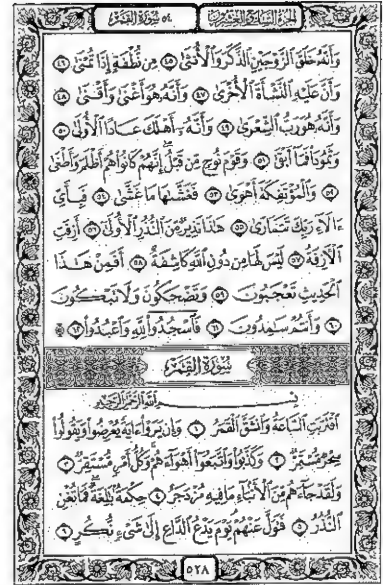 الجزء السابع والعشرون ٥٤ سورة القمر
وَأَنَّهُۥ خَلَقَ ٱلزَّوْجَيْنِ ٱلذَّكَرَ وَٱلْأُنثَىٰ ٤٥ مِن نُّطْفَةٍ إِذَا تُمْنَىٰ ٤٦
وَأَنَّ عَلَيْهِ ٱلنَّشْأَةَ ٱلْأُخْرَىٰ ٤٧ وَأَنَّهُۥ هُوَ أَغْنَىٰ وَأَقْنَىٰ ٤٨
وَأَنَّهُۥ هُوَ رَبُّ ٱلشِّعْرَىٰ ٤٩ وَأَنَّهُۥٓ أَهْلَكَ عَادًا ٱلْأُولَىٰ ٥٠
وَثَمُودَا۟ فَمَآ أَبْقَىٰ ٥١ وَقَوْمَ نُوحٍ مِّن قَبْلُ إِنَّهُمْ كَانُوا۟ هُمْ أَظْلَمَ وَأَطْغَىٰ
٥٢ وَٱلْمُؤْتَفِكَةَ أَهْوَىٰ ٥٣ فَغَشَّىٰهَا مَا غَشَّىٰ ٥٤ فَبِأَىِّ
ءَالَآءِ رَبِّكَ تَتَمَارَىٰ ٥٥ هَٰذَا نَذِيرٌ مِّنَ ٱلنُّذُرِ ٱلْأُولَىٰٓ ٥٦ أَزِفَتِ
ٱلْءَازِفَةُ ٥٧ لَيْسَ لَهَا مِن دُونِ ٱللَّهِ كَاشِفَةٌ ٥٨ أَفَمِنْ هَٰذَا
ٱلْحَدِيثِ تَعْجَبُونَ ٥٩ وَتَضْحَكُونَ وَلَا تَبْكُونَ
٦٠ وَأَنتُمْ سَٰمِدُونَ ٦١ فَٱسْجُدُوا۟ لِلَّهِ وَٱعْبُدُوا۟ ۩ ٦٢
سُورَةُ القَمَرِ
بِسْمِ ٱللَّهِ ٱلرَّحْمَٰنِ ٱلرَّحِيمِ
ٱقْتَرَبَتِ ٱلسَّاعَةُ وَٱنشَقَّ ٱلْقَمَرُ ١ وَإِن يَرَوْا۟ ءَايَةً يُعْرِضُوا۟ وَيَقُولُوا۟
سِحْرٌ مُّسْتَمِرٌّ ٢ وَكَذَّبُوا۟ وَٱتَّبَعُوٓا۟ أَهْوَآءَهُمْ وَكُلُّ أَمْرٍ مُّسْتَقِرٌّ ٣
وَلَقَدْ جَآءَهُم مِّنَ ٱلْأَنۢبَآءِ مَا فِيهِ مُزْدَجَرٌ ٤ حِكْمَةٌۢ بَٰلِغَةٌ فَمَا تُغْنِ
ٱلنُّذُرُ ٥ فَتَوَلَّ عَنْهُمْ يَوْمَ يَدْعُ ٱلدَّاعِ إِلَىٰ شَىْءٍ نُّكُرٍ ٦
٥٢٨